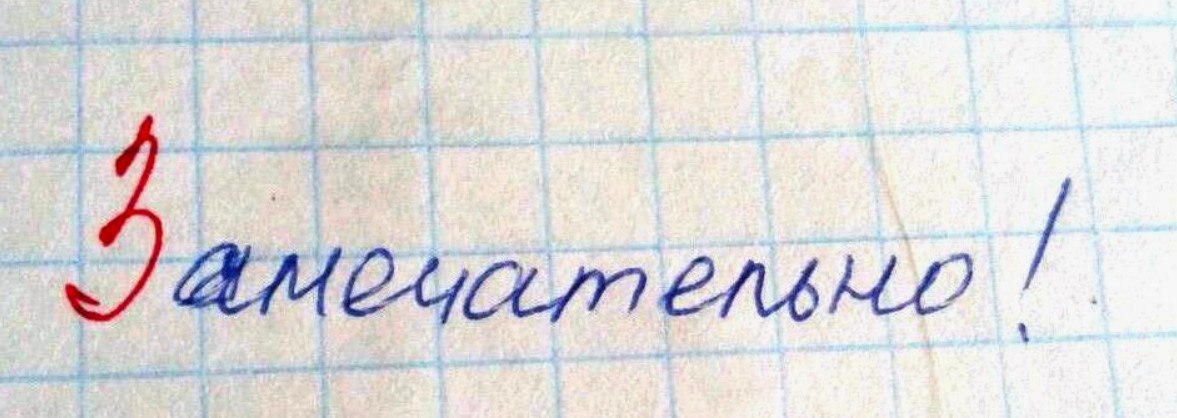 Замечательно!